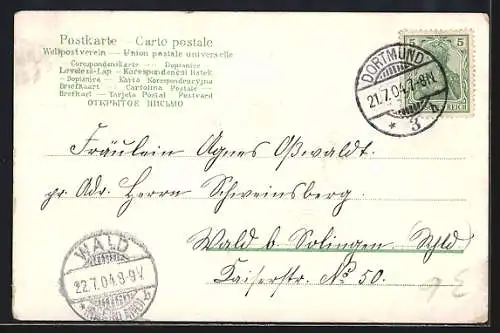 Postkarte — Carte postale
Weltpostverein — Union postale universelle
Correspondenzkarte — Dopisnice
Levelező-Lap — Korespondenční lístek
Dopisnica — Karta Korespondencyjna
Briefkaart — Cartolina Postale
Brefkort — Tarjeta Postal — Postcard
ОТКРЫТОЕ ПИСЬМО
5
REICH
DORTMUND
21.7.04.7-8N.
* 3 h
Fräulein Agnes Oßwaldt.
pr. Adr. Herrn Schweinsberg.
Wald b/ Solingen. Rhld
Kaiserstr. No 50.
WALD
22.7.04.8-9V.
(RHEINLAND)